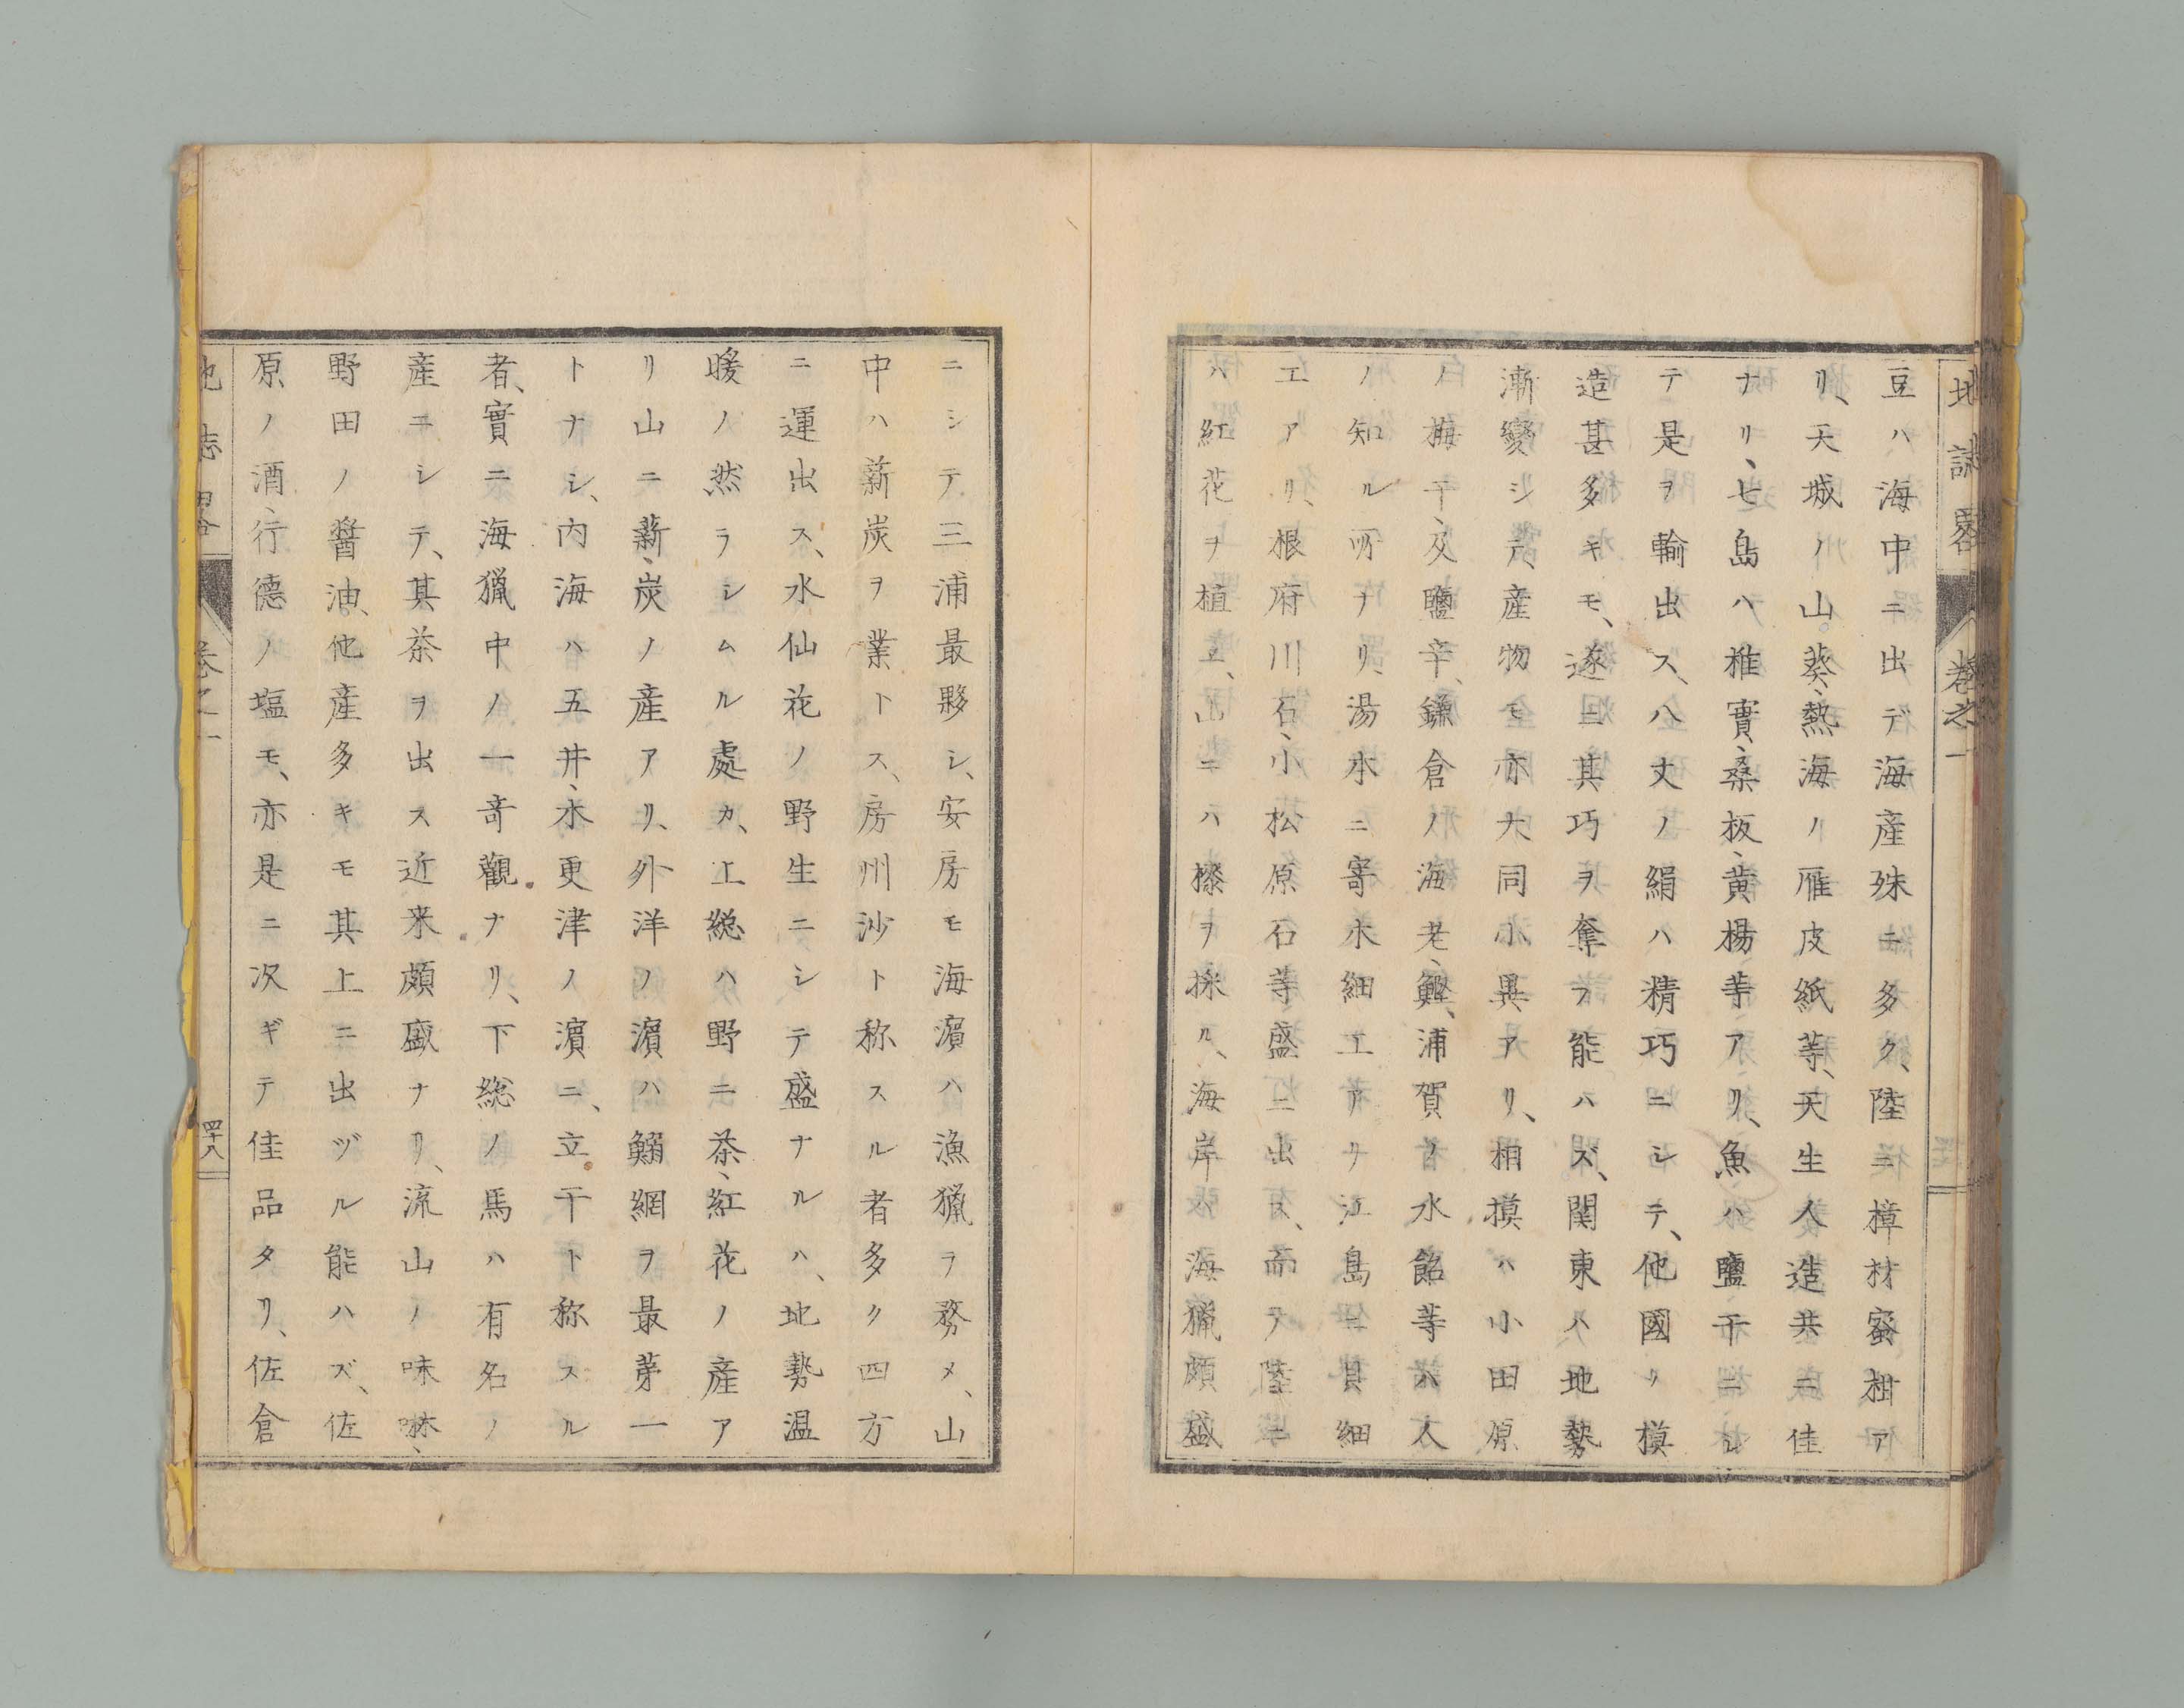 地誌畧 卷之一
豆ハ海中ニ出デ海産殊ニ多ク、陸ニ樟材蜜柑ア
リ、天城ノ山葵、熱海ノ雁皮紙等、天生人造共ニ佳
ナリ、七島ハ椎實、桑板、黄楊等アリ、魚ハ鹽干ニシ
テ是ヲ輸出ス、八丈ノ絹ハ精巧ニシテ、他國リ模
造甚多キモ、遂ニ其巧ヲ奪フ能ハズ、関東ハ地勢
漸變シテ、産物モ亦大同小異アリ、相摸ハ小田原
ノ梅干、及鹽辛、鎌倉ノ海老、鰹、浦賀ノ水飴等ハ人
ノ知ル所ナリ、湯本ニ寄木細工アリ江島ニ貝細
工アリ、根府川石、小松原石等盛ニ出ス、而テ陸ニ
ハ紅花ヲ植ヱ、山ニハ櫞ヲ採ル、海岸ハ海猟頗盛
ニシテ三浦最夥シ、安房モ海濵ハ漁猟ヲ務メ、山
中ハ薪炭ヲ業トス、房州沙ト称スル者多ク四方
ニ運出ス、水仙花ノ野生ニシテ盛ナルハ、地勢温
暖ノ然ラシムル處カ、上総ハ野ニ茶、紅花ノ産ア
リ山ニ薪、炭ノ産アリ、外洋ノ濵ハ鰯網ヲ最第一
トナシ、内海ハ五井、木更津ノ濵ニ、立干ト称スル
者、實ニ海猟中ノ一竒觀ナリ、下総ノ馬ハ有名ノ
産ニシテ、其茶ヲ出ス近来頗盛ナリ、流山ノ味淋、
野田ノ醤油、他産多キモ其上ニ出ヅル能ハズ、佐
原ノ酒、行德ノ塩モ、亦是ニ次ギテ佳品タリ、佐倉
地誌畧 卷之一 四十八